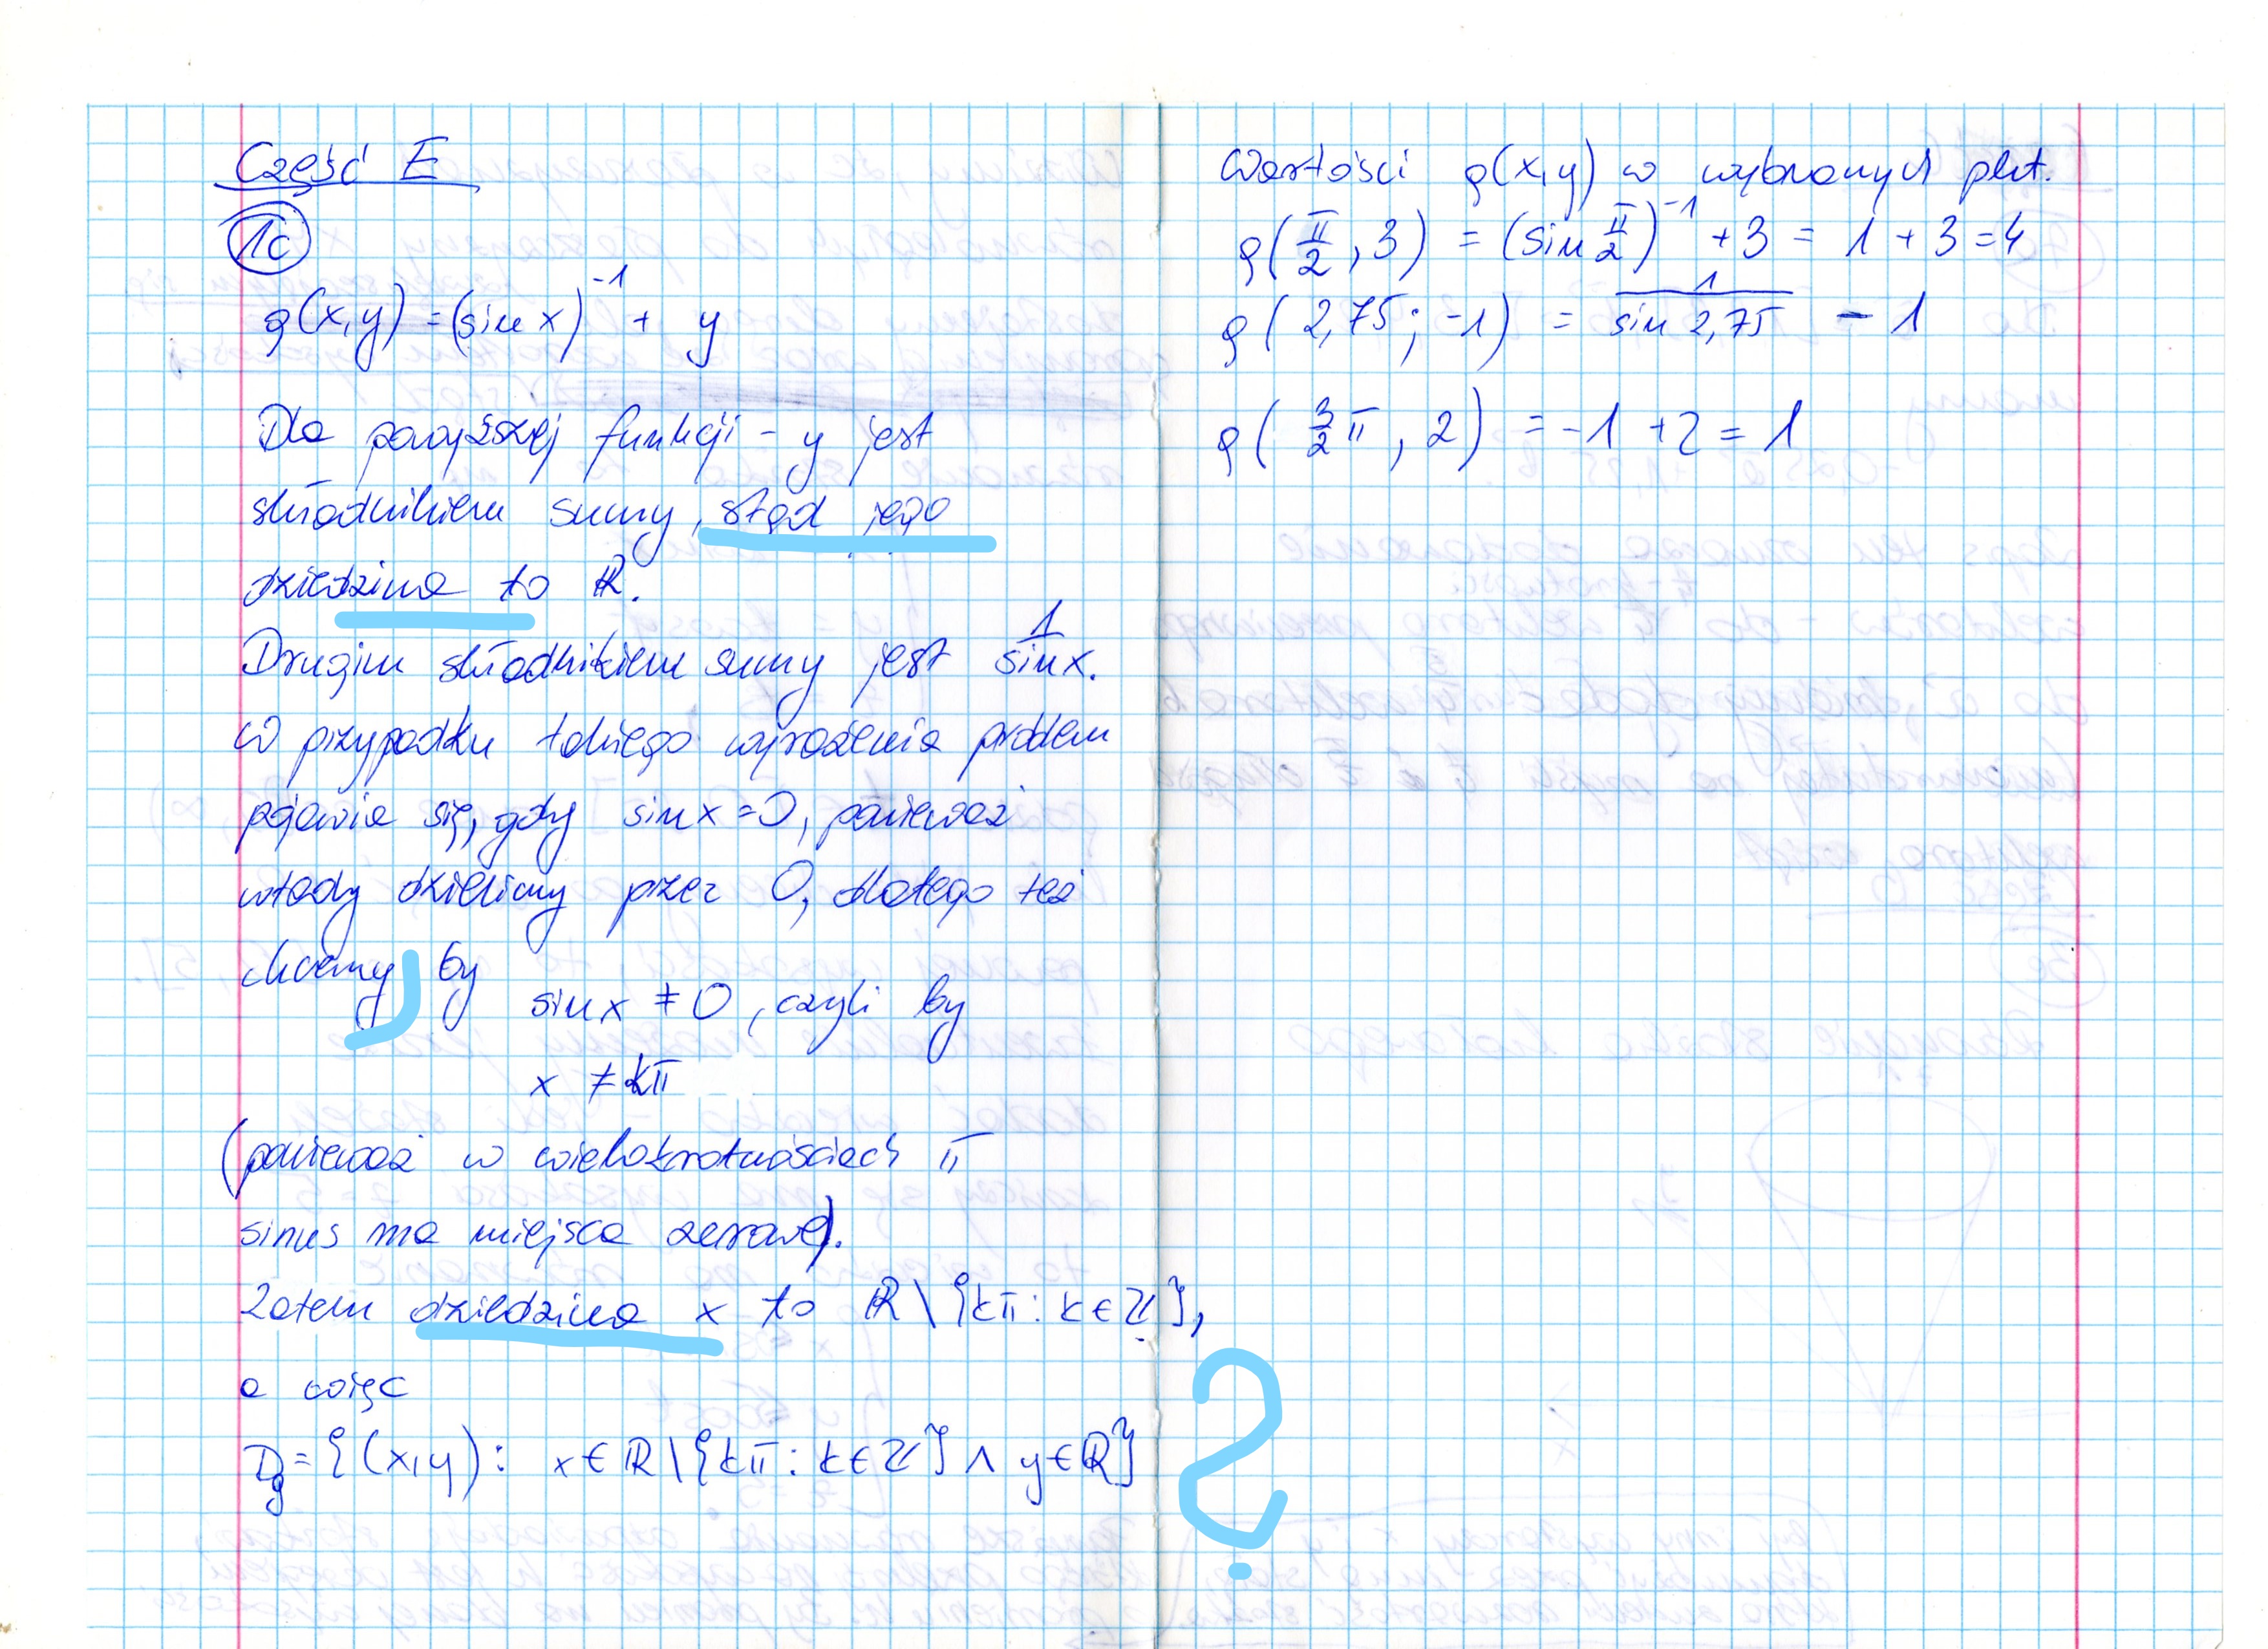 Część E
1c
g(x,y) = (sin x)⁻¹ + y
Dla powyższej funkcji - y jest
składnikiem sumy, stąd jego
dziedzina to ℝ.
Drugim składnikiem sumy jest 1/sin x.
W przypadku takiego wyrażenia problem
pojawia się, gdy sin x = 0, ponieważ
wtedy dzielimy przez 0, dlatego też
chcemy by
sin x ≠ 0, czyli by
x ≠ kπ
(ponieważ w wielokrotnościach π
sinus ma miejsca zerowe).
Zatem dziedzina x to ℝ \ {kπ : k ∈ ℤ},
a więc
D_g = {(x,y) : x ∈ ℝ \ {kπ : k ∈ ℤ} ∧ y ∈ ℝ}
?
Wartości g(x,y) w wybranych pkt.
g(π/2, 3) = (sin π/2)⁻¹ + 3 = 1 + 3 = 4
g(2,75; -1) = 1/sin 2,75 - 1
g(3/2 π, 2) = -1 + 2 = 1